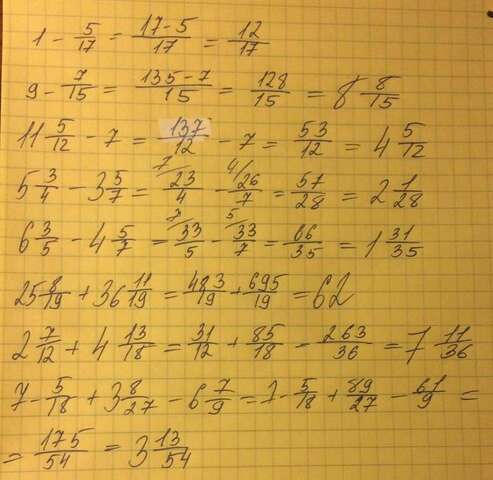 1 - 5/17 = (17-5)/17 = 12/17
9 - 7/15 = (135-7)/15 = 128/15 = 8 8/15
11 5/12 - 7 = 137/12 - 7 = 53/12 = 4 5/12
5 3/4 - 3 5/7 = 7/ 23/4 - 4/ 26/7 = 57/28 = 2 1/28
6 3/5 - 4 5/7 = 7/ 33/5 - 5/ 33/7 = 66/35 = 1 31/35
25 8/19 + 36 11/19 = 483/19 + 695/19 = 62
2 7/12 + 4 13/18 = 31/12 + 85/18 - 263/36 = 7 11/36
7 - 5/18 + 3 8/27 - 6 7/9 = 7 - 5/18 + 89/27 - 61/9 =
= 175/54 = 3 13/54